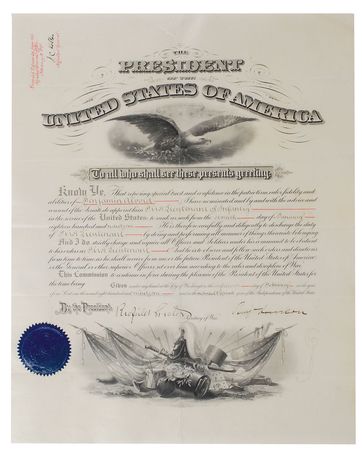 THE
PRESIDENT
OF THE
UNITED STATES OF AMERICA
To all who shall see these presents, greeting:
Know Ye, That reposing special trust and confidence in the patriotism, valor, fidelity and
abilities of Benjamin I have nominated and by and with the advice and
consent of the Senate do appoint him First Lieutenant of Infantry
in the service of the United States: to rank as such from the day of January
eighteen hundred and He is therefore carefully and diligently to discharge the duty
of First Lieutenant by doing and performing all manner of things thereunto belonging.
And I do strictly charge and require all Officers and Soldiers under his command to be obedient
to his orders as First Lieutenant And he is to observe and follow such orders and directions
from time to time as he shall receive from me or the future President of the United States of America
or the General or other superior Officers set over him according to the rules and discipline of War.
This Commission to continue in force during the pleasure of the President of the United States for
the time being.
Given under my hand at the City of Washington, this day of February in the year
of our Lord one thousand eight hundred and and in the year of the Independence of the United States
By the President:
Redfield Proctor
Secretary of War
Benj Harrison